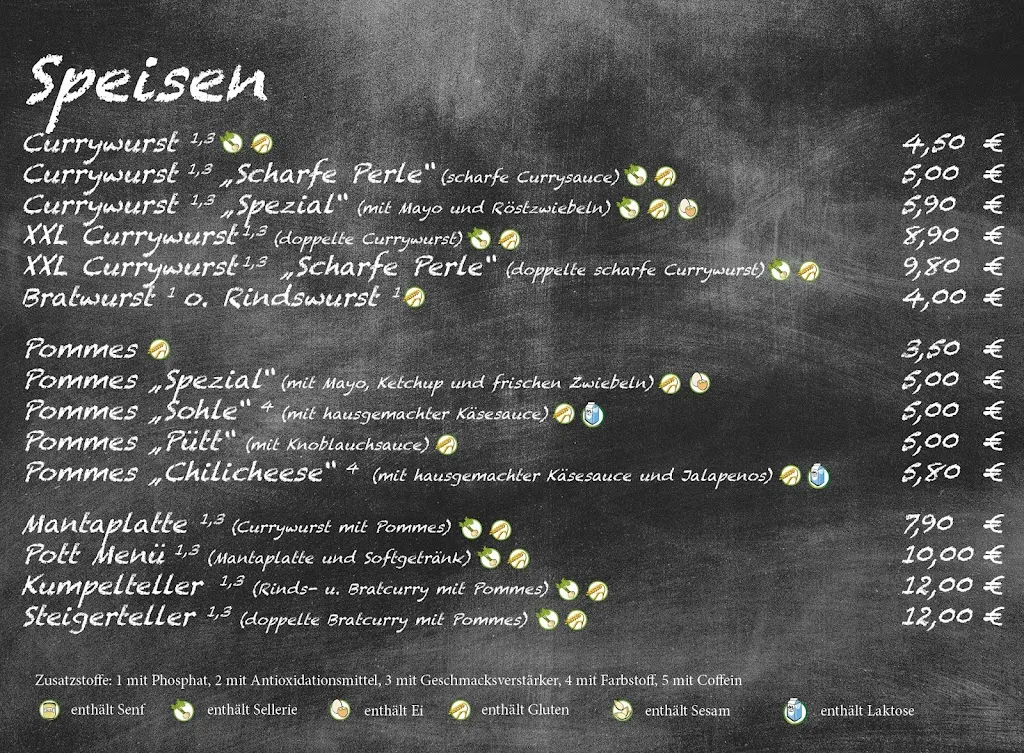 Speisen
Currywurst 1,3 4,50 €
Currywurst 1,3 „Scharfe Perle“ (scharfe Currysauce) 5,00 €
Currywurst 1,3 „Spezial“ (mit Mayo und Röstzwiebeln) 5,90 €
XXL Currywurst 1,3 (doppelte Currywurst) 8,90 €
XXL Currywurst 1,3 „Scharfe Perle“ (doppelte scharfe Currywurst) 9,80 €
Bratwurst 1 o. Rindswurst 1 4,00 €
Pommes 3,50 €
Pommes „Spezial“ (mit Mayo, Ketchup und frischen Zwiebeln) 5,00 €
Pommes „Sohle“ 4 (mit hausgemachter Käsesauce) 5,00 €
Pommes „Pütt“ (mit Knoblauchsauce) 5,00 €
Pommes „Chilicheese“ 4 (mit hausgemachter Käsesauce und Jalapenos) 5,80 €
Mantaplatte 1,3 (Currywurst mit Pommes) 7,90 €
Pott Menü 1,3 (Mantaplatte und Softgetränk) 10,00 €
Kumpelteller 1,3 (Rinds- u. Bratcurry mit Pommes) 12,00 €
Steigerteller 1,3 (doppelte Bratcurry mit Pommes) 12,00 €
Zusatzstoffe: 1 mit Phosphat, 2 mit Antioxidationsmittel, 3 mit Geschmacksverstärker, 4 mit Farbstoff, 5 mit Coffein
enthält Senf enthält Sellerie enthält Ei enthält Gluten enthält Sesam enthält Laktose